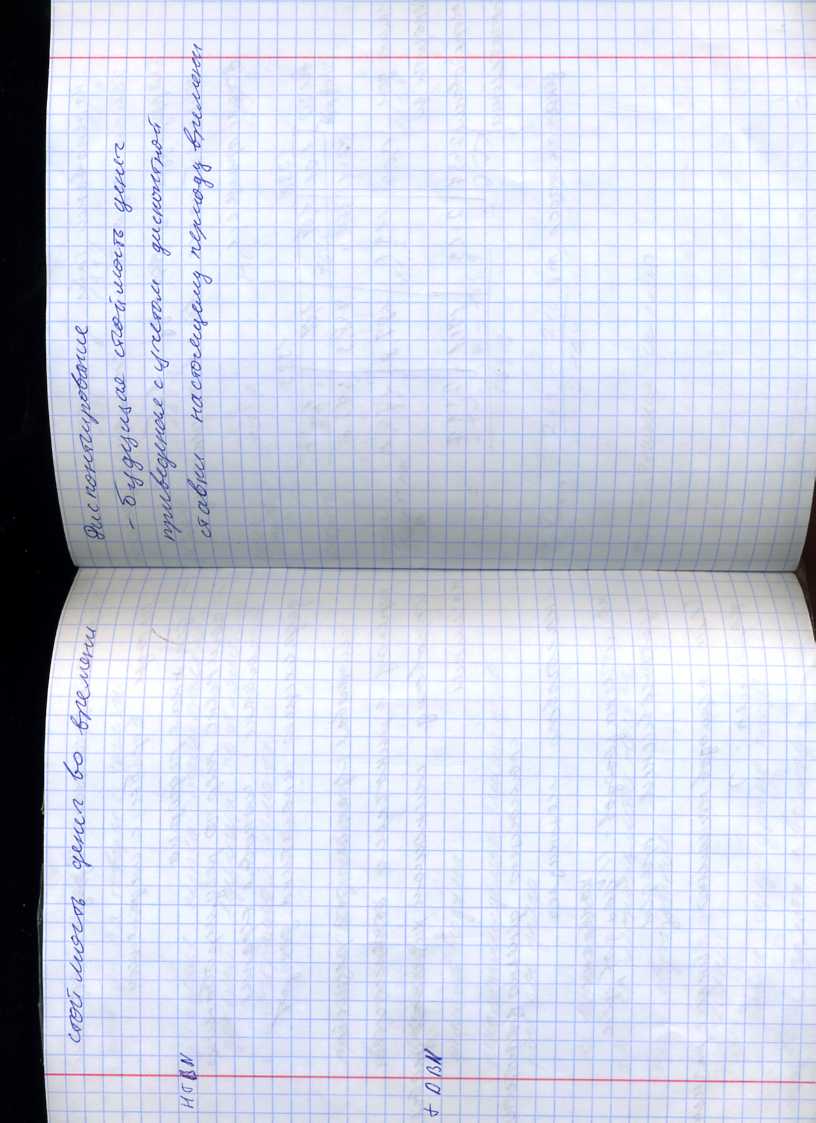 стоймость денег во времени
+ DBN
Дисконтирование
- будущае стоймость денег
приведеное с учетом дисконтной
ставки настоящему периоду времени